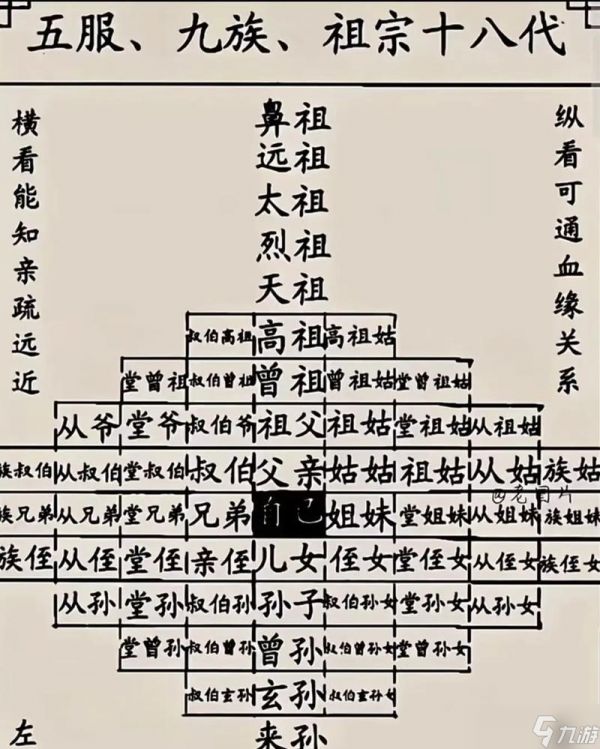 五服、九族、祖宗十八代
横看能知亲疏远近
纵看可通血缘关系
鼻祖
远祖
太祖
烈祖
天祖
叔伯高祖 高祖 高祖姑
堂曾祖 叔伯曾祖 曾祖 曾祖姑 堂曾祖姑
从爷 堂爷 叔伯爷 祖父 祖姑 堂祖姑 从祖姑
族叔伯 从叔伯 堂叔伯 叔伯 父亲 姑姑 祖姑 从姑 族姑
族兄弟 从兄弟 堂兄弟 兄弟 自己 姐妹 堂姐妹 从姐妹 族姐妹
族侄 从侄 堂侄 亲侄 儿女 侄女 堂侄女 从侄女 族侄女
从孙 堂孙 叔伯孙 孙子 叔伯孙女 堂孙女 从孙女
堂曾孙 叔伯曾孙 曾孙 叔伯曾孙女 堂曾孙女
叔伯玄孙 玄孙 叔伯玄孙女
左 来孙
九游